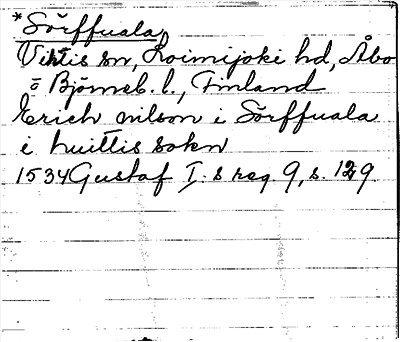 *Sörffuala,
Vittis sn, Loimijoki hd, Åbo
o Björneb. l., Finland
Erich nilson i Sörffuala
i huittis sokn
1534 Gustaf I:s reg. 9, s. 129